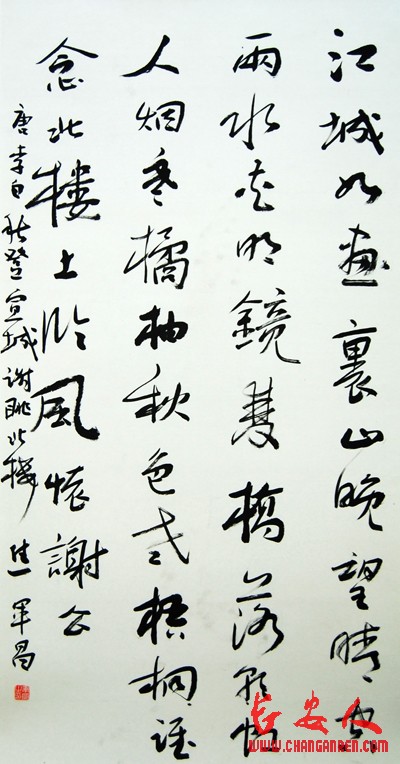 江城如畫裏山晚望晴空
兩水夾明鏡雙橋落彩虹
人烟寒橘柚秋色老梧桐誰
念北楼上临風懷謝公
唐李白秋登宣城謝朓北楼 軍昌
长安人
WWW.CHANGANREN.COM